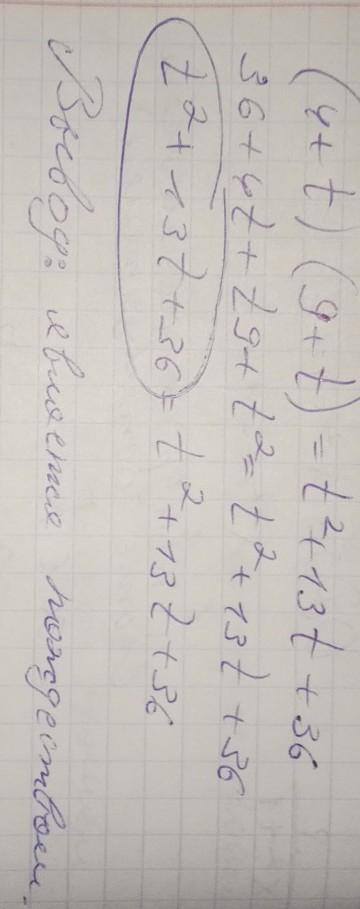 (4 + t) (9 + t) = t² + 13t + 36
36 + 4t + t9 + t² = t² + 13t + 36
t² + 13t + 36 = t² + 13t + 36
Вывод: является тождеством.